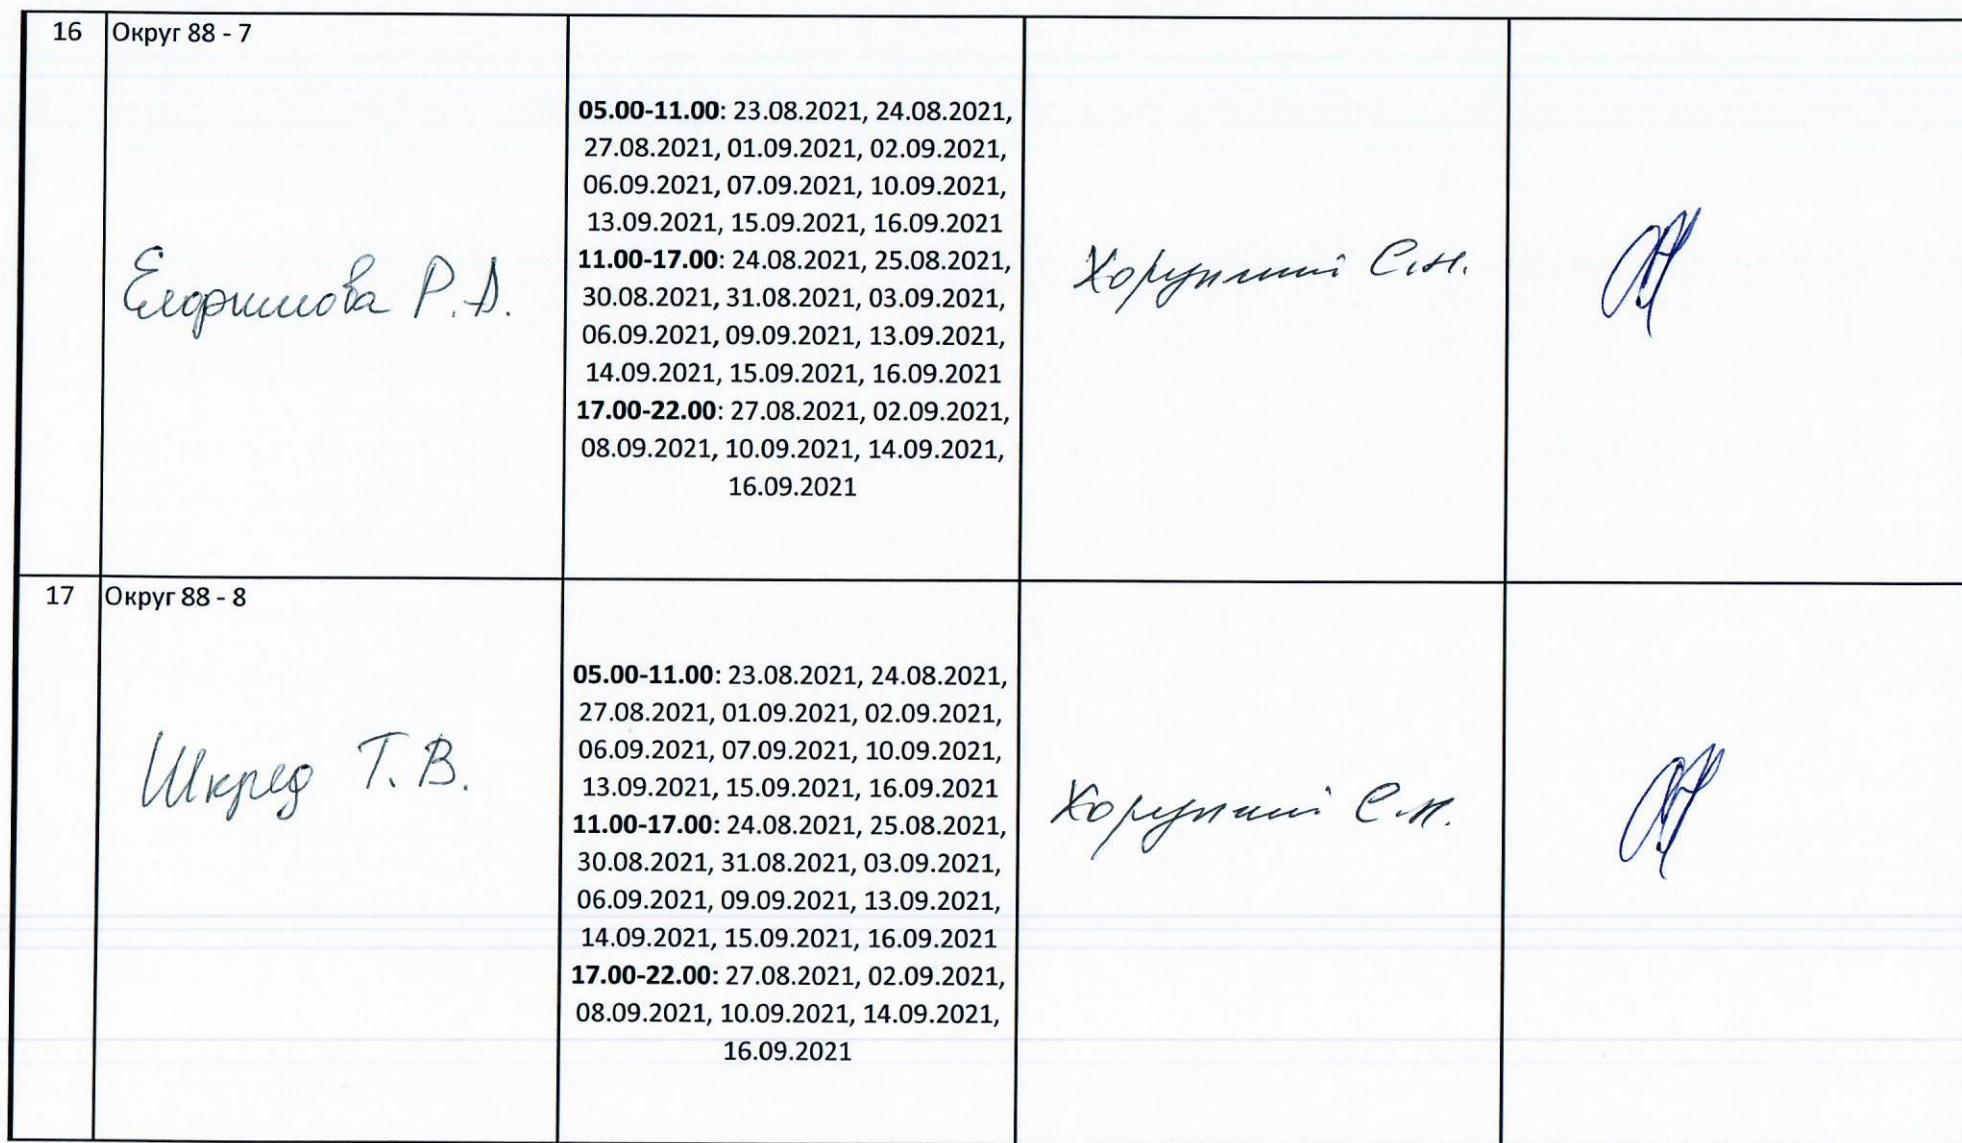 16 Округ 88 - 7
05.00-11.00: 23.08.2021, 24.08.2021,
27.08.2021, 01.09.2021, 02.09.2021,
06.09.2021, 07.09.2021, 10.09.2021,
13.09.2021, 15.09.2021, 16.09.2021
11.00-17.00: 24.08.2021, 25.08.2021,
30.08.2021, 31.08.2021, 03.09.2021,
06.09.2021, 09.09.2021, 13.09.2021,
14.09.2021, 15.09.2021, 16.09.2021
17.00-22.00: 27.08.2021, 02.09.2021,
08.09.2021, 10.09.2021, 14.09.2021,
16.09.2021
Р.А.
17 Округ 88 - 8
Шкред Т.В.
05.00-11.00: 23.08.2021, 24.08.2021,
27.08.2021, 01.09.2021, 02.09.2021,
06.09.2021, 07.09.2021, 10.09.2021,
13.09.2021, 15.09.2021, 16.09.2021
11.00-17.00: 24.08.2021, 25.08.2021,
30.08.2021, 31.08.2021, 03.09.2021,
06.09.2021, 09.09.2021, 13.09.2021,
14.09.2021, 15.09.2021, 16.09.2021
17.00-22.00: 27.08.2021, 02.09.2021,
08.09.2021, 10.09.2021, 14.09.2021,
16.09.2021